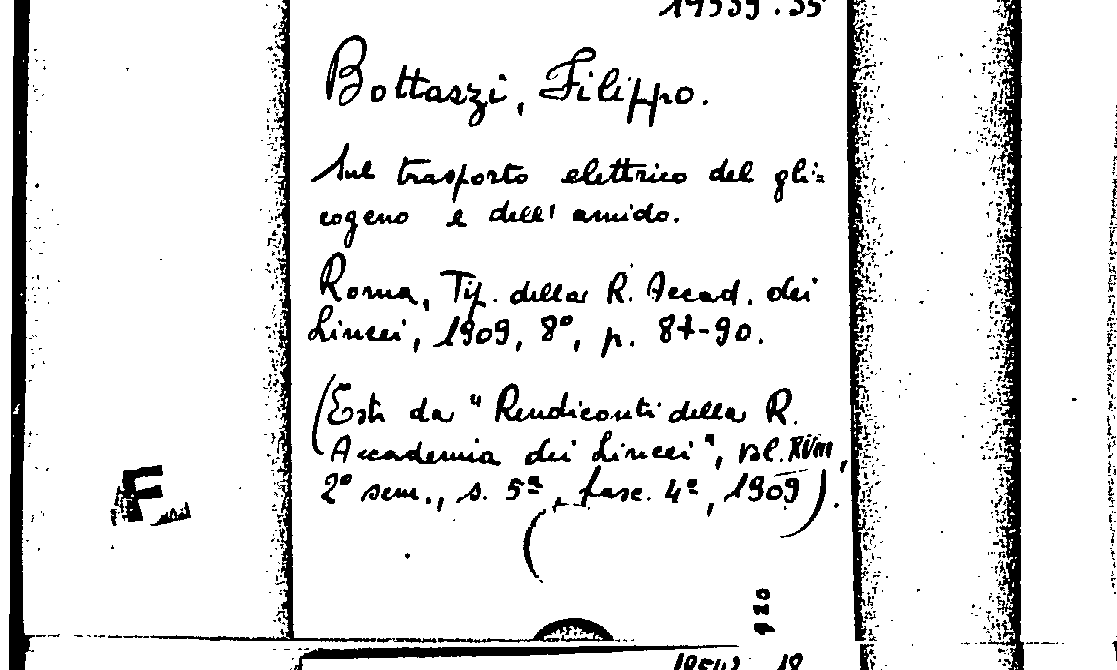 19539.35
Bottaszi, Filippo.
Sul trasporto elettrico del gli=
cogeno e dell' amido.
Roma, Tip. della R. Accad. dei
Lincei, 1909, 8º, p. 87-90.
(Estr. da "Rendiconti della R.
Accademia dei Lincei", vol. XVIII,
2º sem., s. 5ª, fasc. 4º, 1909).
F
920